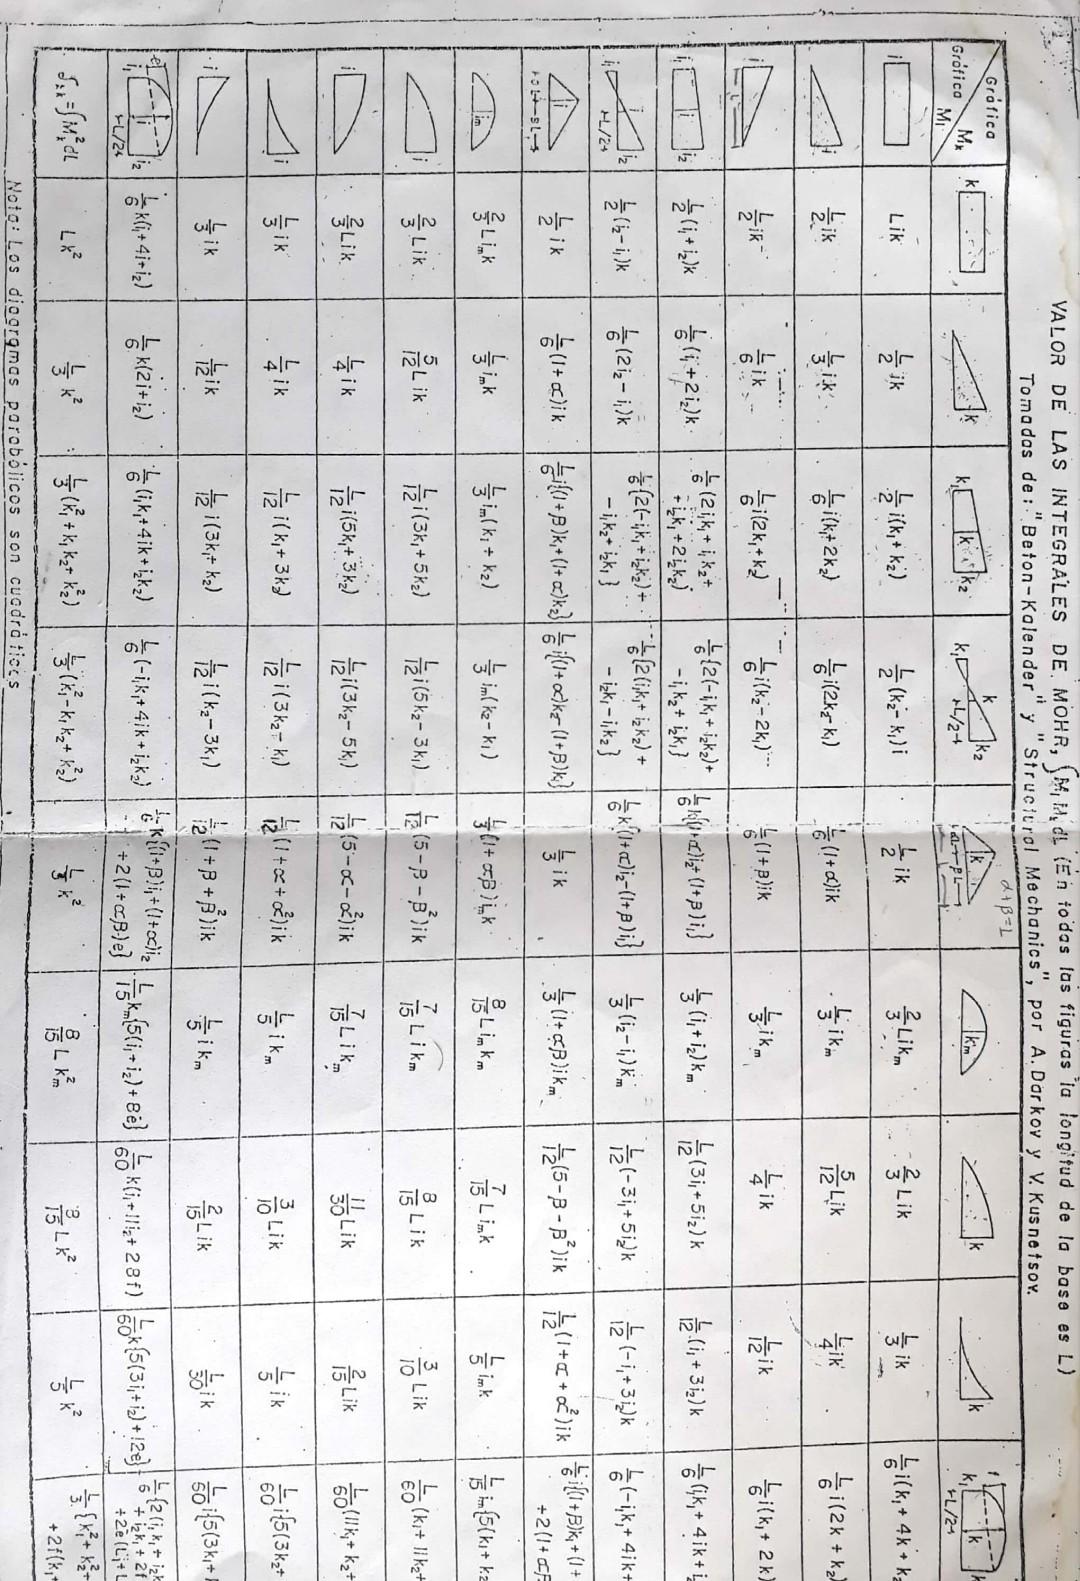 VALOR DE LAS INTEGRALES DE MOHR, ∫MᵢMₖdL (En todas las figuras la longitud de la base es L)
Tomadas de: "Beton-Kalender" y "Structural Mechanics", por A. Darkov y V. Kusnetsov.
Gráfica Mₖ
Gráfica Mᵢ
k
k
k₁ k k₂
k₁ k k₂ L/2
α+β=1 k αL βL
kₘ
k
k
f k₁ k L/2
i
Lik
L/2 ik
L/2 i(k₁+k₂)
L/2 (k₂-k₁)i
L/2 ik
2/3 Likₘ
2/3 Lik
L/3 ik
L/6 i(k₁+4k+k₂
i
L/2 ik
L/3 ik
L/6 i(k₁+2k₂)
L/6 i(2k₂-k₁)
L/6 (1+α)ik
L/3 ikₘ
5/12 Lik
L/4 ik
L/6 i(2k+k₂)
i
L/2 ik
L/6 ik
L/6 i(2k₁+k₂)
L/6 i(k₂-2k₁)
L/6 (1+β)ik
L/3 ikₘ
L/4 ik
L/12 ik
L/6 i(k₁+2k)
i₁ i i₂
L/2 (i₁+i₂)k
L/6 (i₁+2i₂)k
L/6 (2i₁k₁+i₁k₂+
+i₂k₁+2i₂k₂)
L/6 {2(-i₁k₁+i₂k₂)+
-i₁k₂+i₂k₁}
L/6 k{(1+α)i₂+(1+β)i₁}
L/3 (i₁+i₂)kₘ
L/12 (3i₁+5i₂)k
L/12 (i₁+3i₂)k
L/6 (i₁k₁+4ik+i₂
i₁ i i₂ L/2
L/2 (i₂-i₁)k
L/6 (2i₂-i₁)k
L/6 {2(-i₁k₁+i₂k₂)+
-i₁k₂+i₂k₁}
L/6 {2(i₁k₁+i₂k₂)+
-i₂k₁-i₁k₂}
L/6 k{(1+α)i₂-(1+β)i₁}
L/3 (i₂-i₁)kₘ
L/12 (-3i₁+5i₂)k
L/12 (-i₁+3i₂)k
L/6 (-i₁k₁+4ik+
i αL βL
L/2 ik
L/6 (1+α)ik
L/6 i{(1+β)k₁+(1+α)k₂}
L/6 i{(1+α)k₂-(1+β)k₁}
L/3 ik
L/3 (1+αβ)ikₘ
L/12 (5-β-β²)ik
L/12 (1+α+α²)ik
L/6 i{(1+β)k₁+(1+
+2(1+αβ
iₘ
2/3 Liₘk
L/3 iₘk
L/3 iₘ(k₁+k₂)
L/3 iₘ(k₂-k₁)
L/3 (1+αβ)iₘk
8/15 Liₘkₘ
7/15 Liₘk
L/5 iₘk
L/15 iₘ{5(k₁+k₂
i
2/3 Lik
5/12 Lik
L/12 i(3k₁+5k₂)
L/12 i(5k₂-3k₁)
L/12 (5-β-β²)ik
7/15 Likₘ
8/15 Lik
3/10 Lik
L/60 (k₁+11k₂+
i
2/3 Lik
L/4 ik
L/12 i(5k₁+3k₂)
L/12 i(3k₂-5k₁)
L/12 (5-α-α²)ik
7/15 Likₘ
11/30 Lik
2/15 Lik
L/60 (11k₁+k₂+
i
L/3 ik
L/4 ik
L/12 i(k₁+3k₂)
L/12 i(3k₂-k₁)
L/12 (1+α+α²)ik
L/5 ikₘ
3/10 Lik
L/5 ik
L/60 i{5(3k₂+
i
L/3 ik
L/12 ik
L/12 i(3k₁+k₂)
L/12 i(k₂-3k₁)
L/12 (1+β+β²)ik
L/5 ikₘ
2/15 Lik
L/30 ik
L/60 i{5(3k₁+
e i₁ i i₂ L/2
L/6 k(i₁+4i+i₂)
L/6 k(2i+i₂)
L/6 (i₁k₁+4ik+i₂k₂)
L/6 (-i₁k₁+4ik+i₂k₂)
L/6 k{(1+β)i₁+(1+α)i₂
+2(1+αβ)e}
L/15 kₘ{5(i₁+i₂)+8e}
L/60 k(i₁+11i₂+28f)
L/60 k{5(3i₁+i₂)+12e}
L/6 {2(i₁k₁+i₂k
+i₂k₁+2f
+2e(
δₖₖ=∫Mₖ²dL
Lk²
L/3 k²
L/3 (k₁²+k₁k₂+k₂²)
L/3 (k₁²-k₁k₂+k₂²)
L/3 k²
8/15 Lkₘ²
8/15 Lk²
L/5 k²
L/3 {k₁²+k₂²+
+2f(k₁+
Nota: Los diagramas parabólicos son cuadráticos